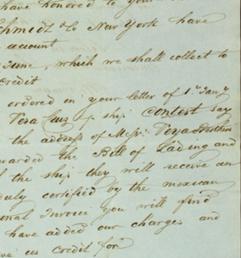 have honored to your
Schmidt & Co New York have
account
June, which we shall collect to
credit
ordered in your letter of 1. Jany
Vera Cruz p ship Contest say
the address of Mess:
warded the Bill of Lading and
of the ship they will receive an
duly certified by the mexican
onal Invoice you will find
have added our charges and
ive us credit for